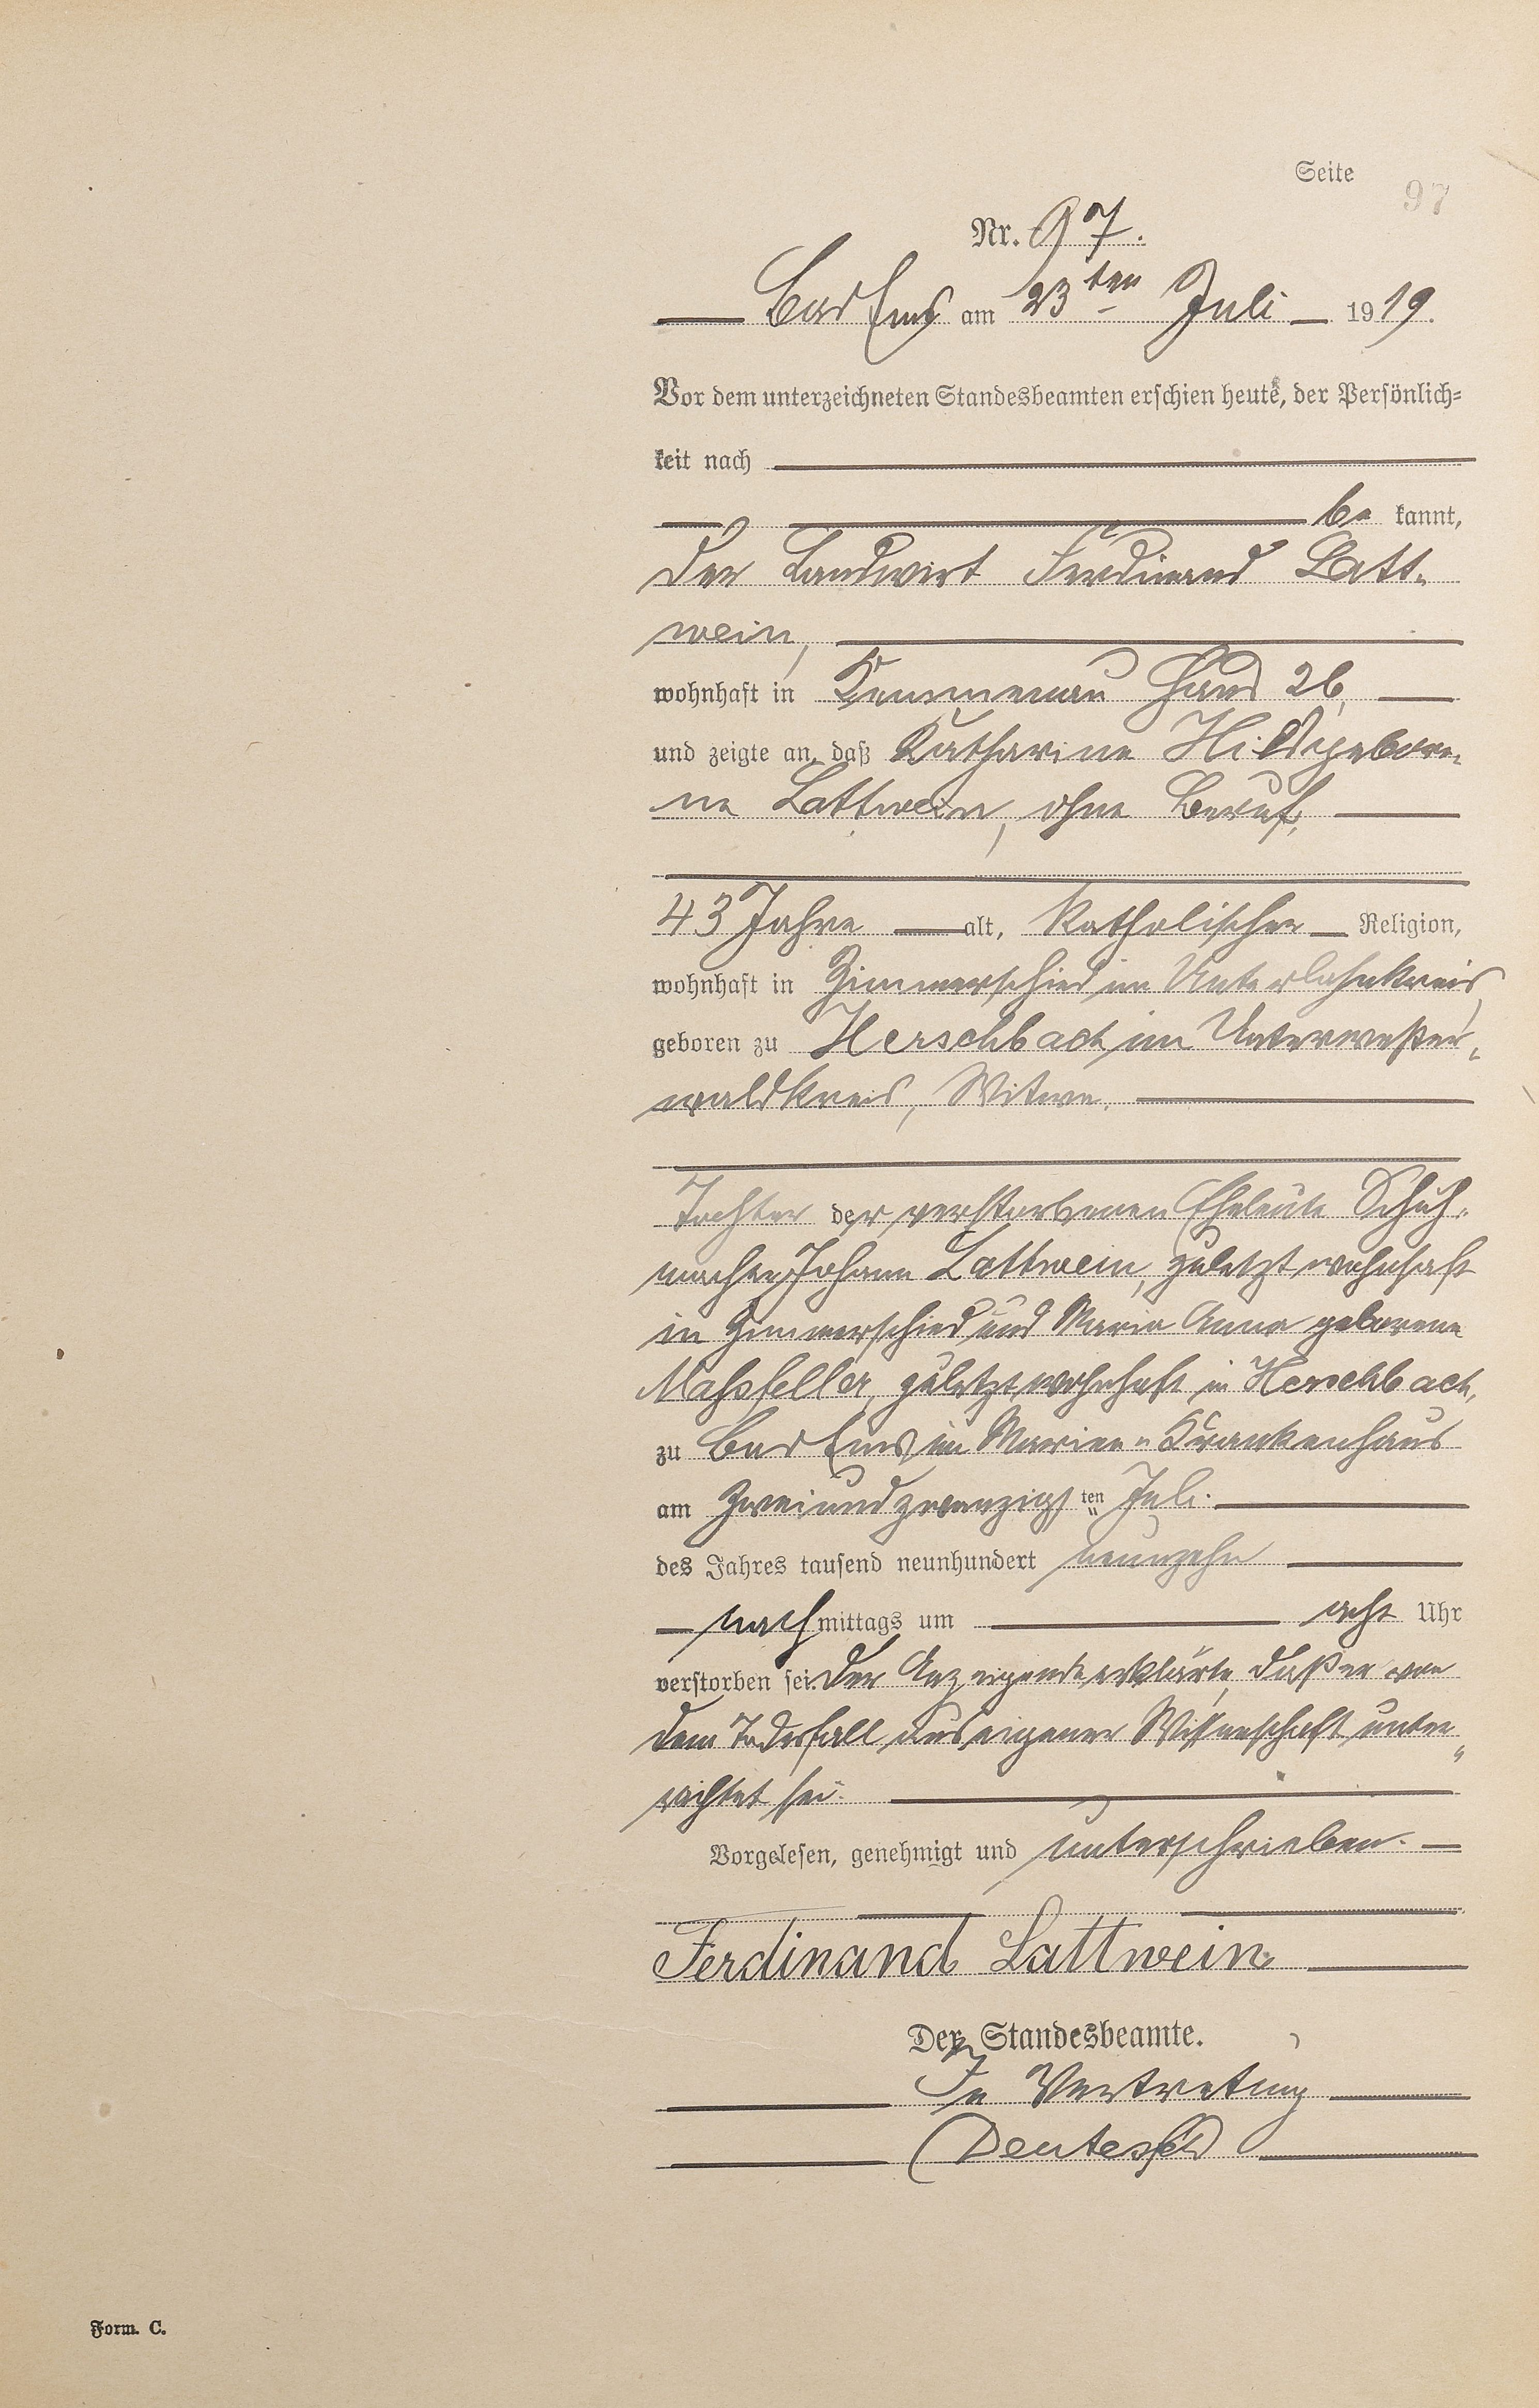 Seite
97
Nr. 97.
Bad Ems am 23ten Juli 1919.
Vor dem unterzeichneten Standesbeamten erschien heute, der Persönlich=
keit nach
be kannt,
der Landwirt Ferdinand Latt-
wein,
wohnhaft in Kemmenau Haus 26,
und zeigte an, daß Katharine Hild gebore-
ne Lattwein, ohne Beruf,
43 Jahre alt, katholischer Religion,
wohnhaft in Zimmerschied im Unterlahnkreis,
geboren zu Herschbach im Unterwester-
waldkreis, Witwe.
Tochter der verstorbenen Eheleute Schuh-
macher Johann Lattwein, zuletzt wohnhaft
in Zimmerschied und Maria Anna geborene
Mahsfeller, zuletzt wohnhaft in Herschbach,
zu Bad Ems im Marien-Krankenhaus
am Zweiundzwanzigsten Juli.
des Jahres tausend neunhundert neunzehn
nachmittags um acht Uhr
verstorben sei. Der Anzeigende erklärte, daß er von
dem Todesfall aus eigener Wissenschaft unter-
richtet sei.
Vorgelesen, genehmigt und unterschrieben.
Ferdinand Lattwein
Der Standesbeamte.
In Vertretung
Form. C.